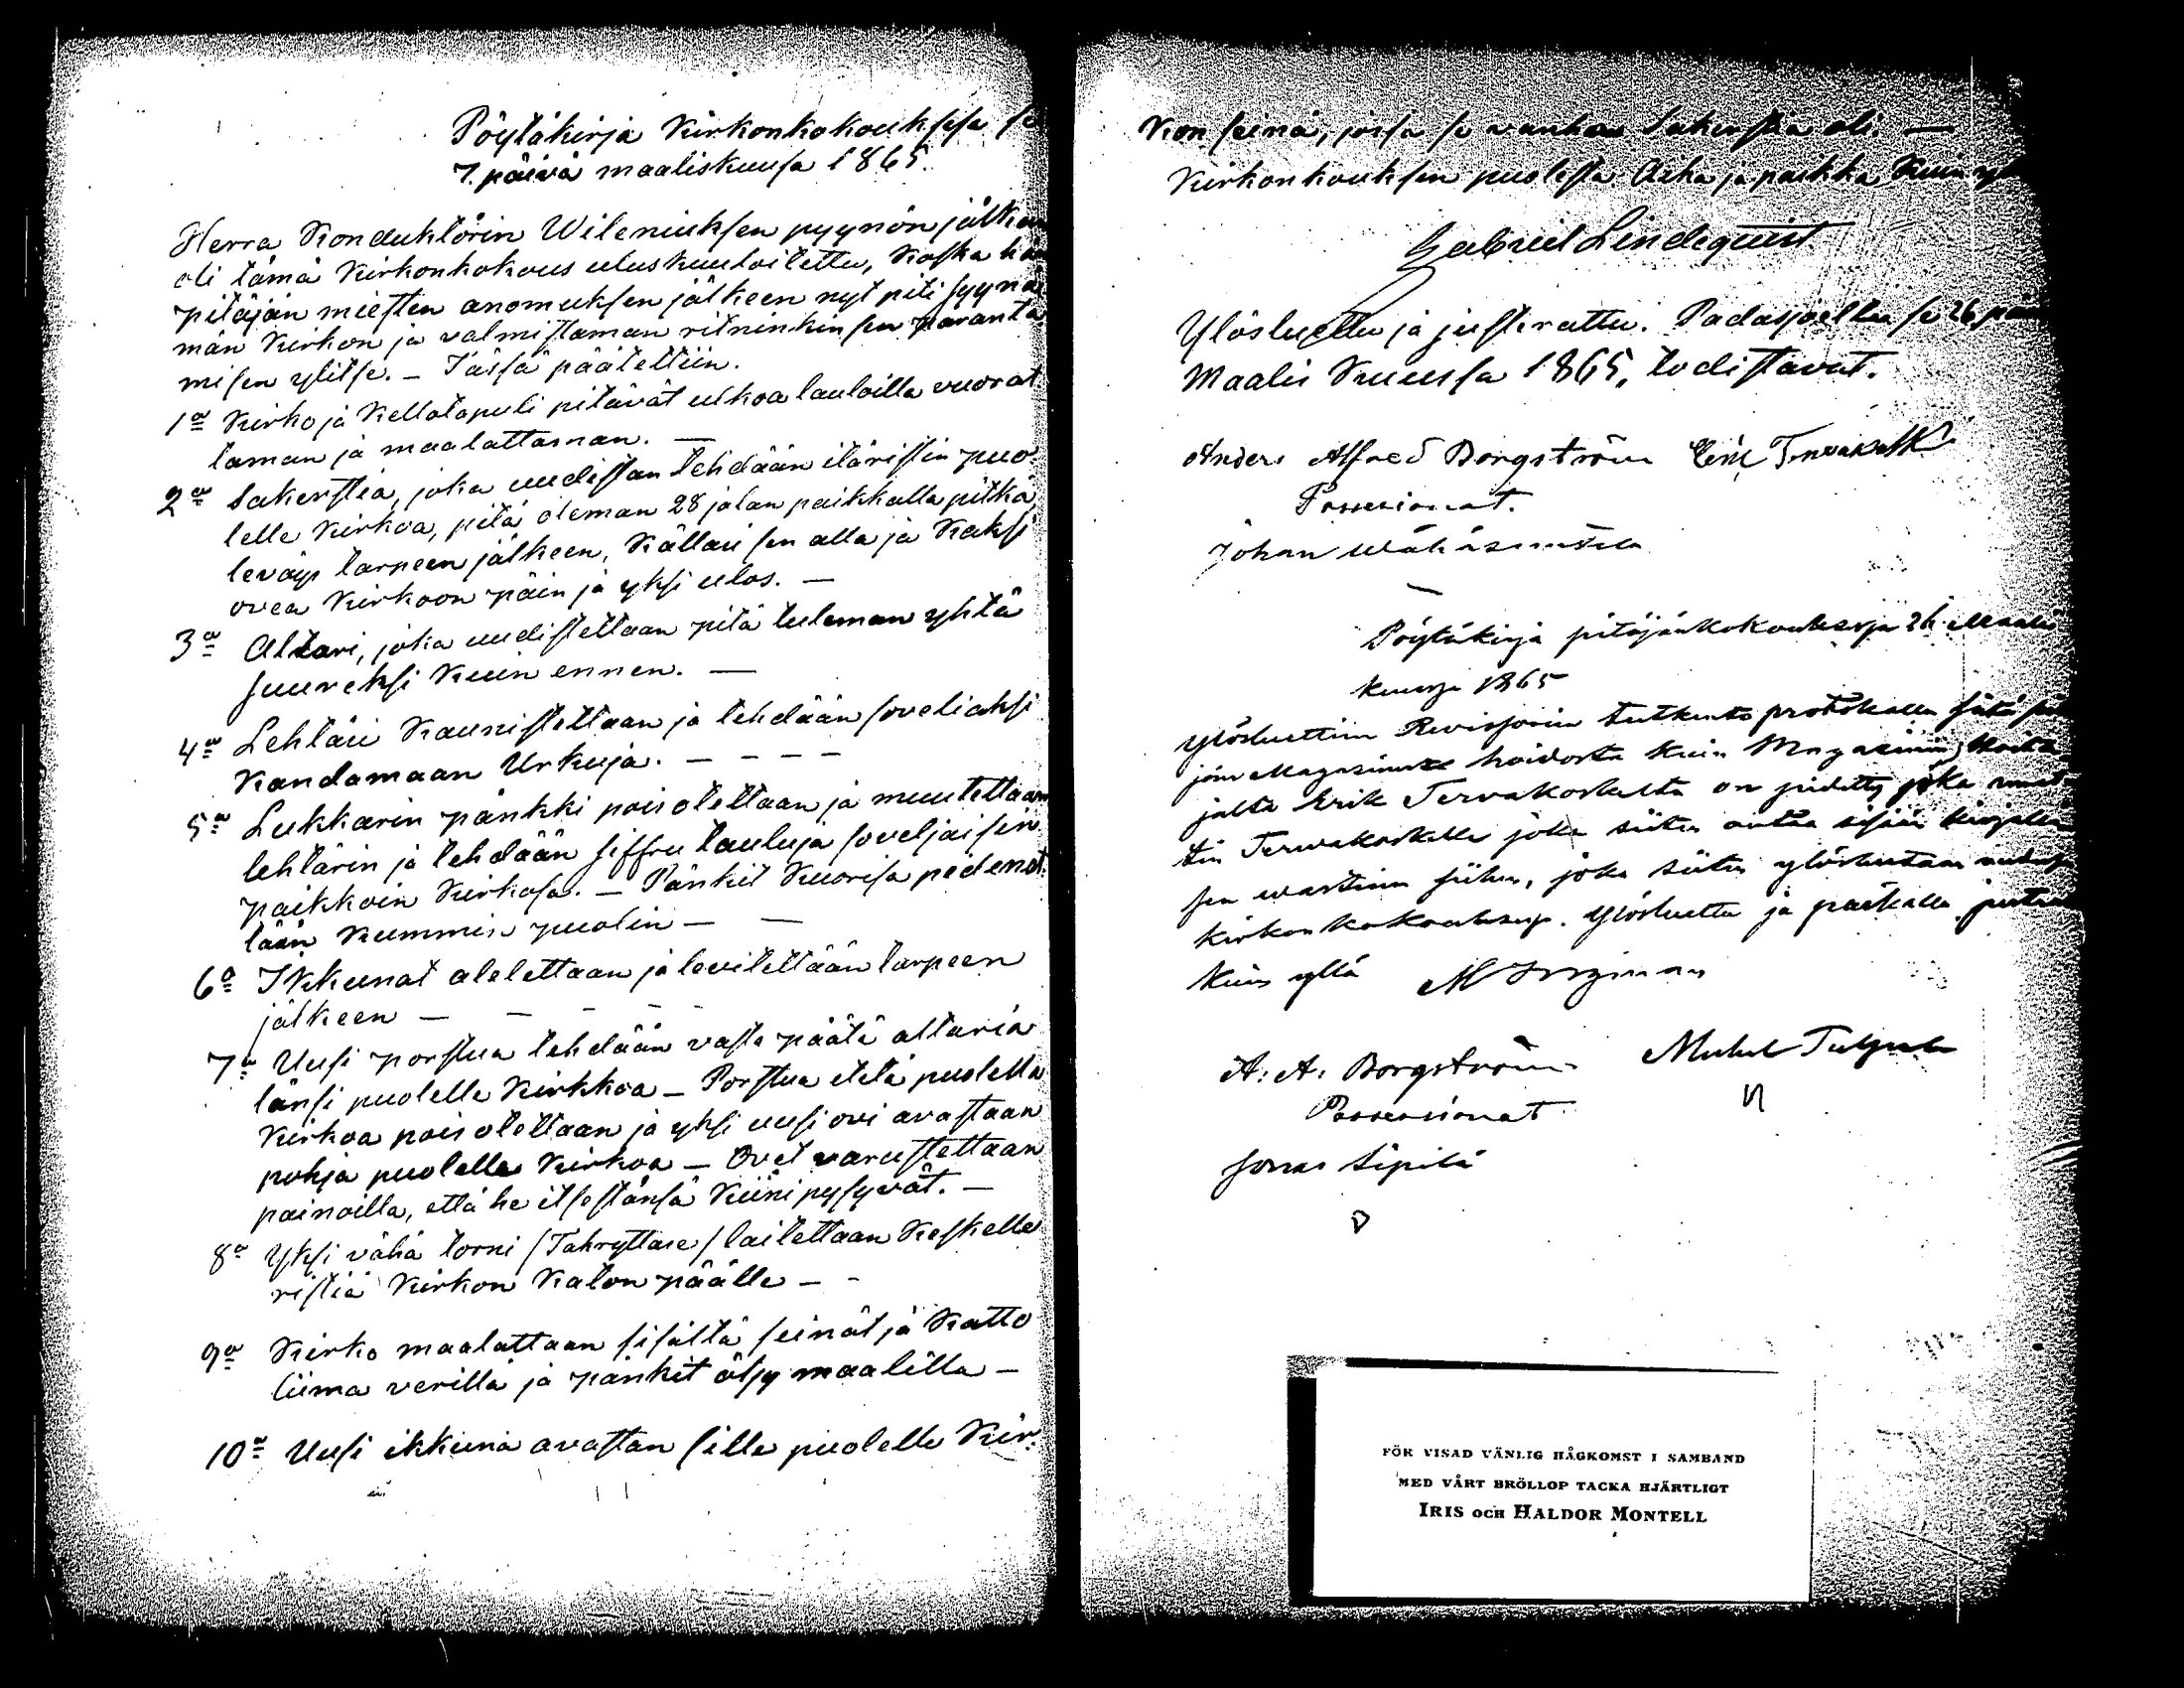 Pöytäkirja Kirkonkokouksesa se
7. päivä maaliskuusa 1865.
Herra Konduktörin Wileniuksen pyynön jälkeen
oli tämä Kirkonkokous uluskuuloitettu, Koska hän
pitäjän miesten anomuksen jälkeen nyt piti syynä-
män Kirkon ja valmistaman ritninkin sen paranta-
misen ylitse. — Tässä päätettiin.
1o Kirko ja Kellotapuli pitävät ulkoa lauloilla vuorat-
taman ja maalattaman. —
2o Sakerstia, joka uudistan tehdään itäristin puo-
lelle Kirkoa, pitä oleman 28 jalan paikkalla pitkä,
leväys tarpeen jälkeen, Källari sen alla ja Kaksi
ovea Kirkoon päin ja yksi ulos. —
3o Altari, joka uudistettaan pitä tuleman yhtä
suureksi Kuin ennen. —
4o Lehtäri Kaunistettaan ja tehdään soveliaksi
Kandamaan Urkuja. — — — —
5o Lukkarin pänkki poisotettaan ja muutettaan
lehtärin ja tehdään siffru tauluja soveljaisin
paikkoin Kirkosa. — Pänkit Kuorisa pidennet-
tään Kummin puolin — —
6o Ikkunat alelettaan ja levitettään tarpeen
jälkeen — — — —
7o Uusi porstua tehdään vasta päätä altaria
länsi puolelle Kirkkoa — Porstua etelä puolella
Kirkoa pois otettaan ja yksi uusi ovi avastaan
pohja puolelle Kirkoa — Ovet varustettaan
painoilla, että he itsestänsä Kiini pysyvät. —
8o Yksi vähä torni /Takryttare/ laitettaan Keskelle
ristiä Kirkon Katon päälle — -
9o Kirko maalattaan sisältä seinät ja Katto
liima verillä ja pänkit öljy maalilla —
10o Uusi ikkuna avastan sille puolelle Kir-
Kon seinä, jossa se vanhan Sakerstia oli. —
Kirkonkouksen puolesta. Aika ja paikka Kuin yl
Gabriel Lindequist
Ylösluettu ja justerattu. Padasjoella se 26 päi
Maalis Kuussa 1865, todistavat.
Anders Alfred Borgström Erik Tervakoski
Possessionat.
Johan Wähäsimola
Pöytäkirja pitäjänkokouksesa 26 Maalis
kuusa 1865
Ylösluettiin Revisorin tutkinto protokolla
Magasinin hoidosta kuin Magasinin
jalta Erik Tervakoskelta on pidetty joka
tin Tervakoskelle joka siitä antaa
sen siihen, joka siitä ylösluetaan
kirkonkokouksesa. Ylösluettu ja paikalla
kuin yllä M Ingman
A: A: Borgström Mikel
Possessionat
Jonas Sipilä
FÖR VISAD VÄNLIG HÅGKOMST I SAMBAND
MED VÅRT BRÖLLOP TACKA HJÄRTLIGT
IRIS OCH HALDOR MONTELL